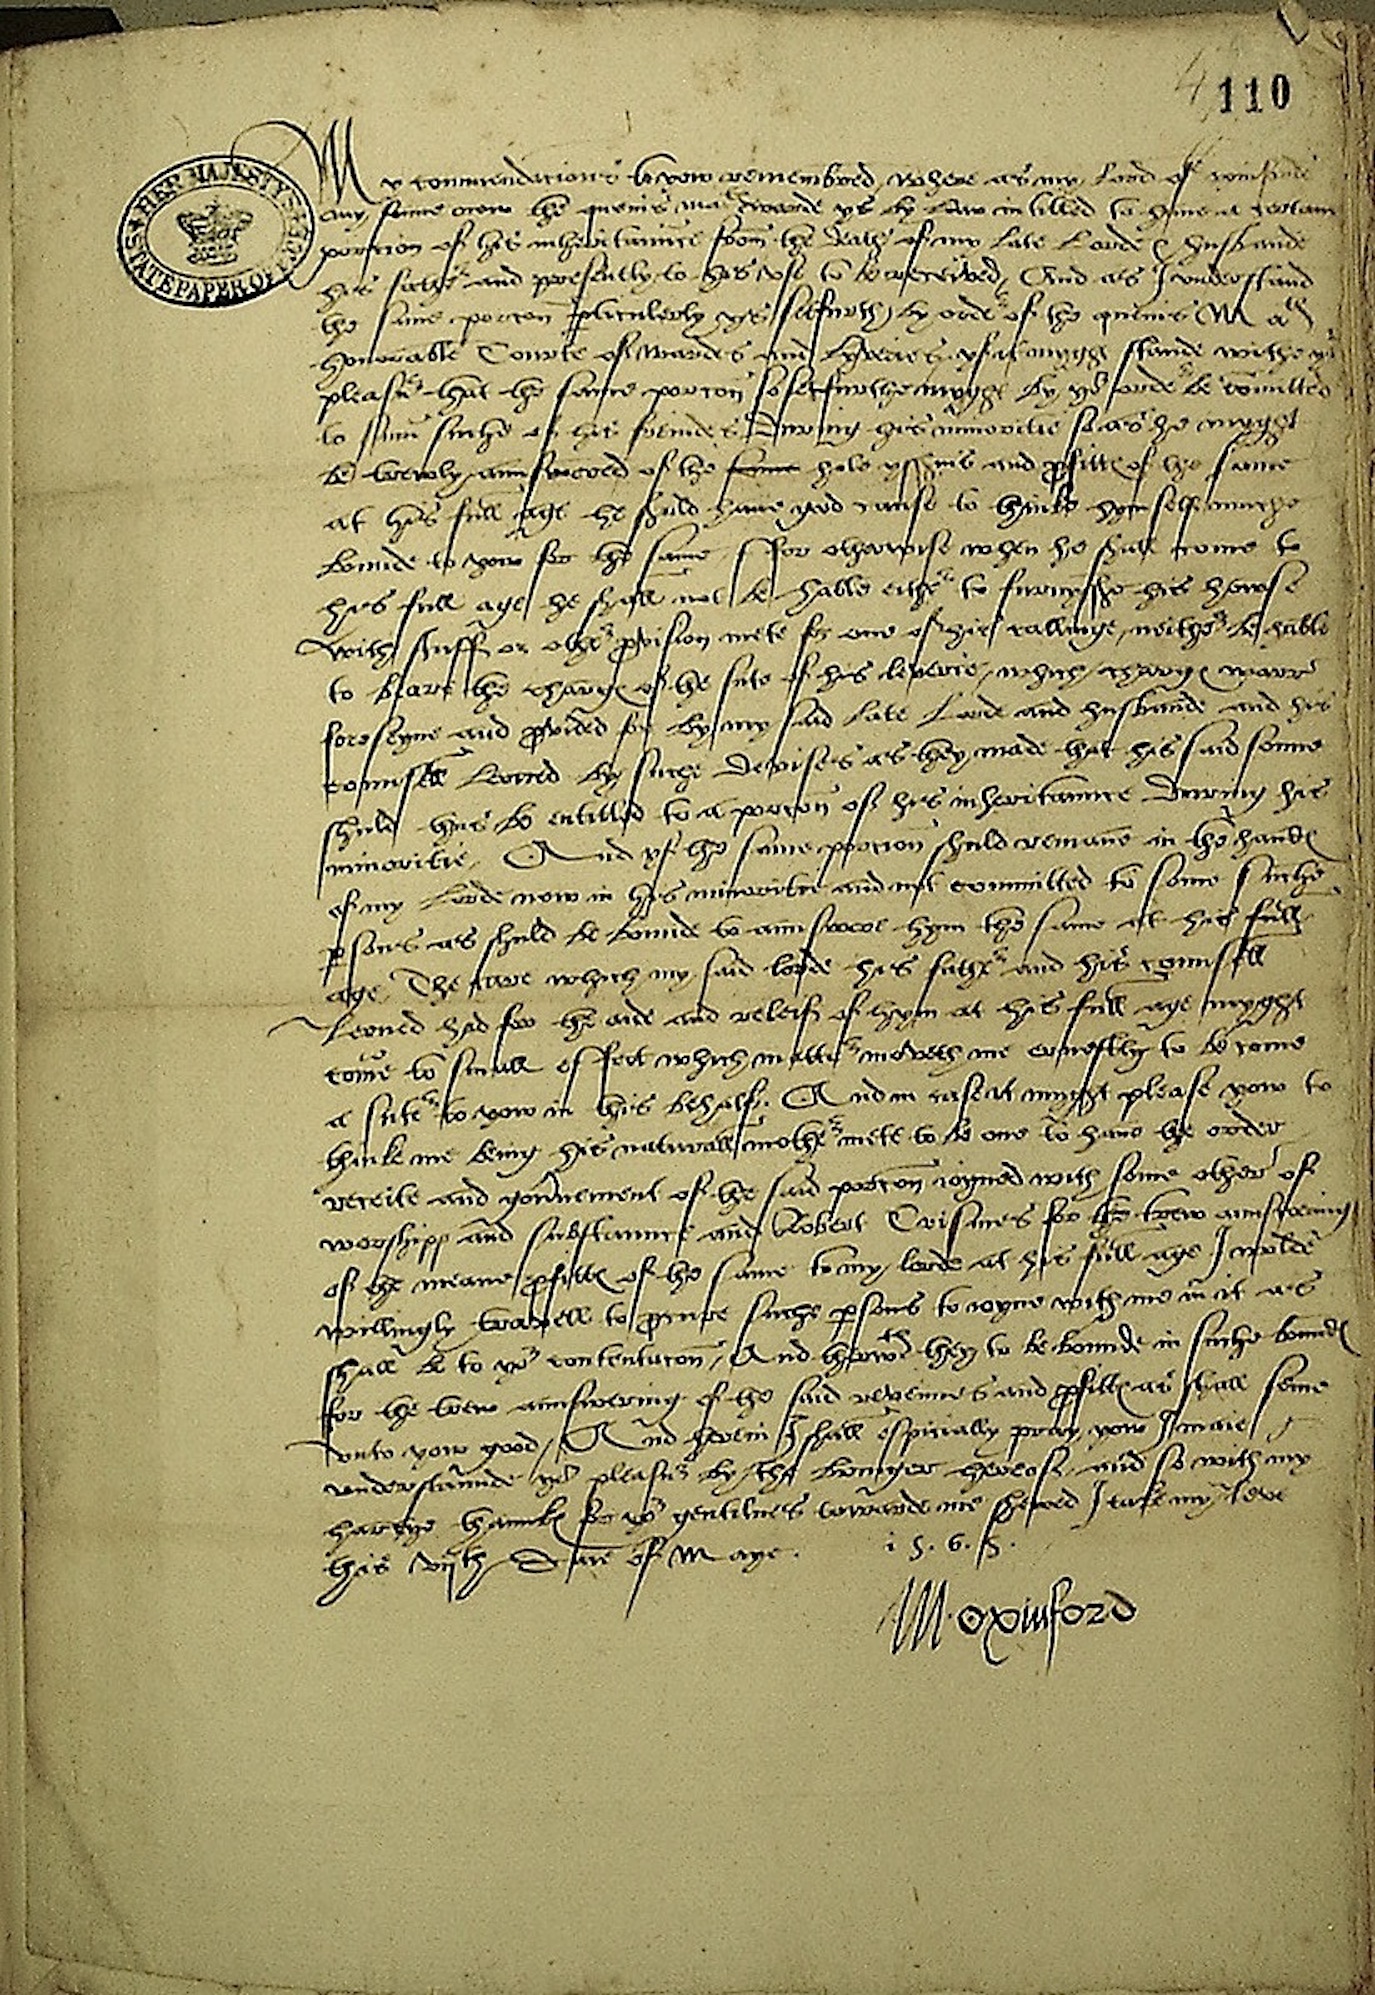 110
HER MAJESTY'S STATE PAPER OFFICE
My commendations to yow remembred, where as my Lord of Oxinford
my sonne now the quenis Mates warde ys by Law intitled to have a certain
portion of his inheritaunce from the death of my late Lorde & husbande
his father and presently to his use to be received, And as I understand
the same porcon pticulerly ys setfurth by order of the quenis Mates
honorable Courte of Wardes and Lyveries yf it myght stande withe yor
pleasur that the same porcon so setfurthe myght by yor order be comitted
to sum suche of his freindes During his minoritie so as he myght
be trewly aunswered of the same hole yssuis and pfitts of the same
at his full age he shuld have good cause to thinke hym self muche
bounde to yow for the same, ffor otherwise when he shall come to
his full age he shall not be hable either to furnyshe his howse
with stuff or other pvision mete for one of his callinge, neither be hable
to beare the charge of the sute of his leverie, which charge warr
forseyne and pvided for by my said late Lorde and husbande and his
counsell lerned by suche Devises as they made that his said sonne
shuld thus be entitled to a porcon of his inheritaunce During his
minoritie, And yf the same porcion shuld remane in the handes
of my Lorde now in his minoritie and not committed to some suche
psons as shuld be bounde to aunswere hym the same at his full
age, The care which my said lorde his father and his counsell
lerned had for the aide and releif of hym at his full age myght
come to small effect which matter moveth me ernestly to be come
a suter to yow in this behalf. And in case it myght please yow to
thinke me being his naturall mother mete to be one to have the order
receite and govnement of the said porcon ioyned with some other of
worshipp and substaunce and Robert Cristmes for the trew aunswering
of the meane pfitts of the same to my lorde at his full age I wolde
willingly travell to pcure suche psons to ioyne with me in it as
shall be to yor contentacon, And herwth they to be bounde in suche bondes
for the trew aunswering of the said revenues and pfitts as shall seme
unto yow good, And herein I shall especially pray yow I maie
understaunde yor pleasur by the bringer hereof, and so with my
hartye thankes for yor gentilnes towarde me shewed I take my leve
this vijth Daie of Maye. 1565.
M. Oxinford